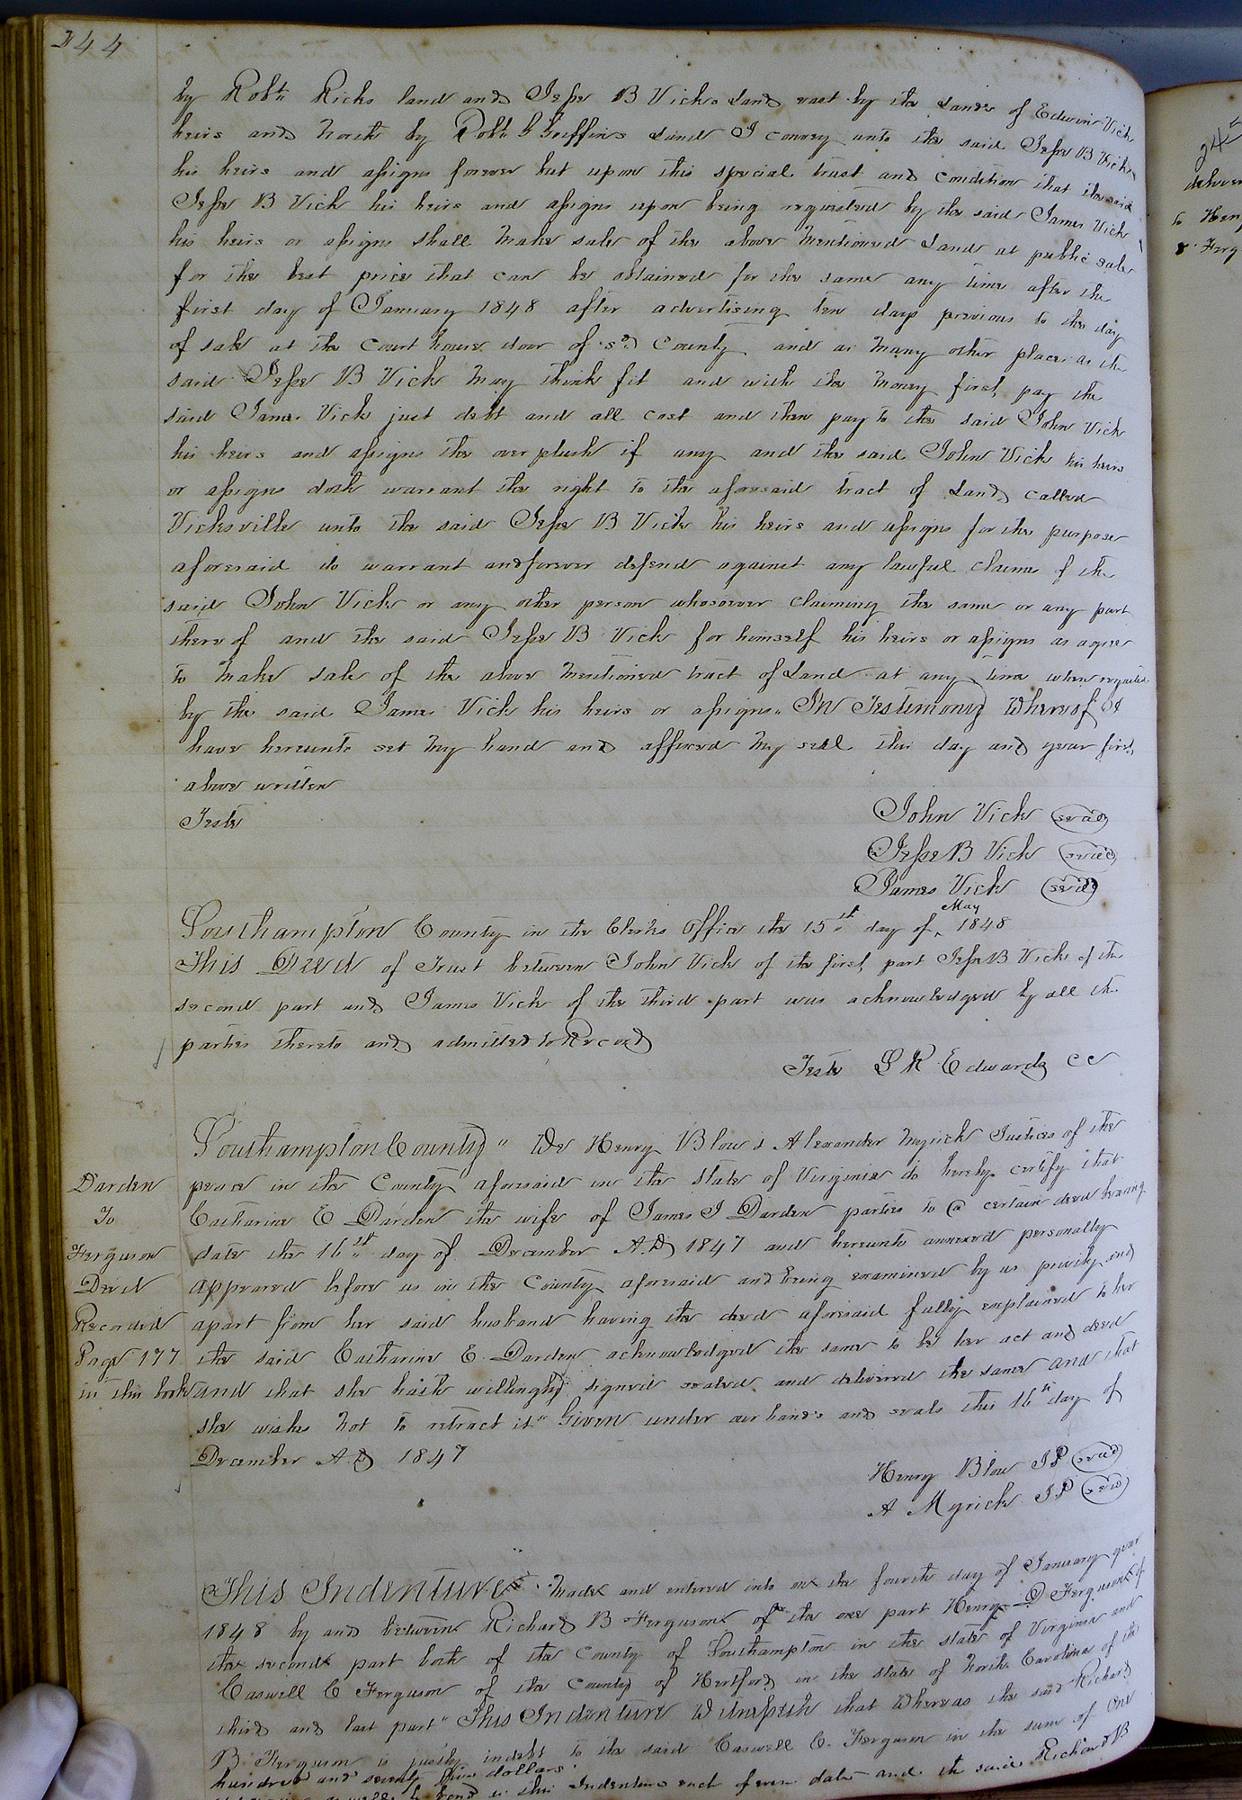 244
by Robt. Ricks land and Jesse B Vicks Land east by the Lands of Edwin Vick
heirs and North by Robt G Griffins Land I convey unto the said Jesse B Vick
his heirs and assigns forever but upon this special trust and condition that the said
Jesse B Vick his heirs and assigns upon being requested by the said James Vick
his heirs or assigns shall make sale of the above mentioned Land at public sale
for the best price that can be obtained for the same any time after the
first day of January 1848 after advertising ten days previous to the day
of sale at the Court house door of sd. County and as many other places as the
said Jesse B Vick may think fit and with the money first pay the
said James Vick just debt and all cost and then pay to the said John Vick
his heirs and assigns the over plush if any and the said John Vick his heirs
or assigns doth warrant the right to the aforesaid tract of Land called
Vicksville unto the said Jesse B Vick his heirs and assigns for the purpose
aforesaid do warrant and forever defend against any lawful claims of the
said John Vick or any other person whosoever claiming the same or any part
there of and the said Jesse B Vick for himself his heirs or assigns as agree
to make sale of the above mentioned tract of Land at any time when required
by the said James Vick his heirs or assigns. In Testimony Whereof I
have hereunto set my hand and affixed my seal this day and year first
above written
Teste
John Vick seal
Jesse B Vick seal
James Vick seal
Southampton County in the Clerks Office the 15th day of May 1848
This Deed of Trust between John Vick of the first part Jesse B Vick of the
second part and James Vick of the third part was acknowledged by all the
parties thereto and admitted to Record
Teste L R Edwards CC
Southampton County" We Henry Blow & Alexander Myrick Justices of the
Darden
To
Ferguson
Deed
Recorded
Page 177
in this book
peace in the County aforesaid in the State of Virginia do hereby certify that
Catharine E Darden the wife of James J Darden parties to a certain deed bearing
date the 16th day of December A.D 1847 and hereunto annexed personally
appeared before us in the County aforesaid and being examined by us privily and
apart from her said husband having the deed aforesaid fully explained to her
the said Catharine E. Darden acknowledged the same to be her act and deed
and that she hath willingly signed sealed and delivered the same and that
she wishes not to retract it" Given under our hands and seals this 16th day of
December A.D 1847
Henry Blow JP seal
A Myrick JP seal
This Indenture Made and entered into on the fourth day of January year
1848 by and between Richard B Ferguson of the one part Henry D Ferguson of
the second part both of the County of Southampton in the state of Virginia and
Caswell C Ferguson of the County of Hertford in the state of North Carolina of the
third and last part" This Indenture Witnesseth that Whereas the said Richard
B. Ferguson is justly indebt to the said Caswell C. Ferguson in the sum of One
hundred and seventy dollars
bond in this Indenture each of even date and the said Richard B
245
deliver
to Hen
& Ferg